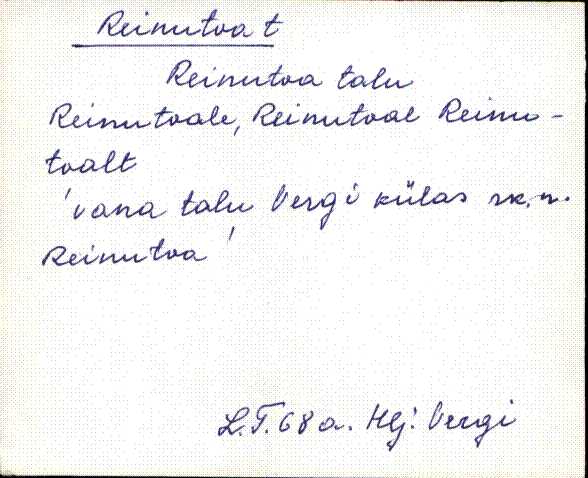 Reinutoa t
Reinutoa talu
Reinutoale, Reinutoal Reinu-
toalt
'vana talu Vergi külas rk.n.
Reinutoa'
L.T. 68 a. Hlj. Vergi